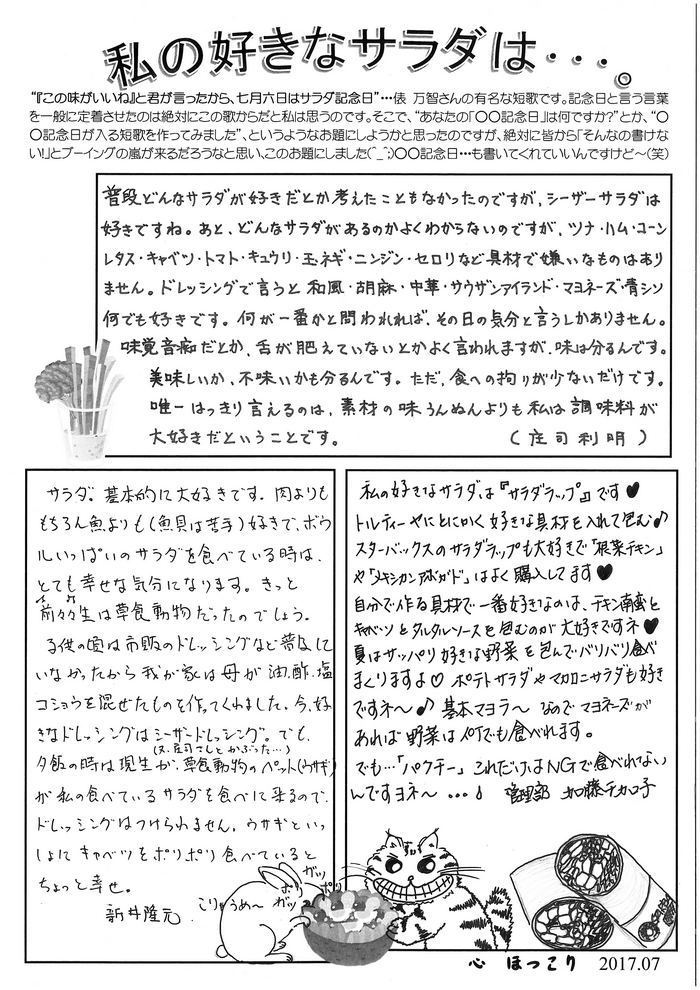 私の好きなサラダは・・・。
“『この味がいいね』と君が言ったから、七月六日はサラダ記念日”…俵 万智さんの有名な短歌です。記念日と言う言葉
を一般に定着させたのは絶対にこの歌からだと私は思うのです。そこで、“あなたの「○○記念日」は何ですか?”とか、“○
○記念日が入る短歌を作ってみました”、というようなお題にしようかと思ったのですが、絶対に皆から「そんなの書けな
い!」とブーイングの嵐が来るだろうなと思い、このお題にしました(^_^;)○○記念日…も書いてくれていいんですけど〜(笑)
普段どんなサラダが好きだとか考えたこともなかったのですが、シーザーサラダは
好きですね。あと、どんなサラダがあるのかよくわからないのですが、ツナ・ハム・コーン
レタス・キャベツ・トマト・キュウリ・玉ネギ・ニンジン・セロリなど具材で嫌いなものはあり
ません。ドレッシングで言うと和風・胡麻・中華・サウザンアイランド・マヨネーズ・青シソ
何でも好きです。何が一番かと問われれば、その日の気分と言うしかありません。
味覚音痴だとか、舌が肥えていないとかよく言われますが、味は分るんです。
美味しいか、不味いかも分るんです。ただ、食への拘りが少ないだけです。
唯一はっきり言えるのは、素材の味うんぬんよりも私は調味料が
大好きだということです。 (庄司利明)
サラダ。基本的に大好きです。肉よりも
もちろん魚よりも(魚貝は苦手)好きで、ボウ
ルいっぱいのサラダを食べている時は、
とても幸せな気分になります。きっと
前々々生は草食動物だったのでしょう。
子供の頃は市販のドレッシングなど普及して
いなかったから我が家は母が油、酢、塩
コショウを混ぜたものを作ってくれました。今、好
きなドレッシングはシーザードレッシング。でも、
(又、庄司さんとかぶった…)
夕飯の時は現生が、草食動物のペット(ウサギ)
が私の食べているサラダを食べに来るので、
ドレッシングはつけられません。ウサギといっ
しょにキャベツをポリポリ食べていると
ちょっと幸せ。
新井隆元
私の好きなサラダは『サラダラップ』です♥
トルティーヤにとにかく好きな具材を入れて包む♪
スターバックスのサラダラップも大好きで「根菜チキン」
や「メキシカンアボガド」はよく購入してます♥
自分で作る具材で一番好きなのは、チキン南蛮と
キャベツとタルタルソースを包むのが大好きですネ♥
夏はサッパリ好きな野菜を包んでバリバリ食べ
まくりますよ♡ ポテトサラダやマカロニサラダも好き
ですネ〜♪ 基本マヨラ〜なのでマヨネーズが
あれば野菜は何でも食べれます。
でも…「パクチー」これだけはNGで食べれない
んですヨネ〜…♪ 管理部 加藤チカ子
ガッ
ポリ ポリ
こりゅうめ〜 ガッ
心 ほっこり 2017.07